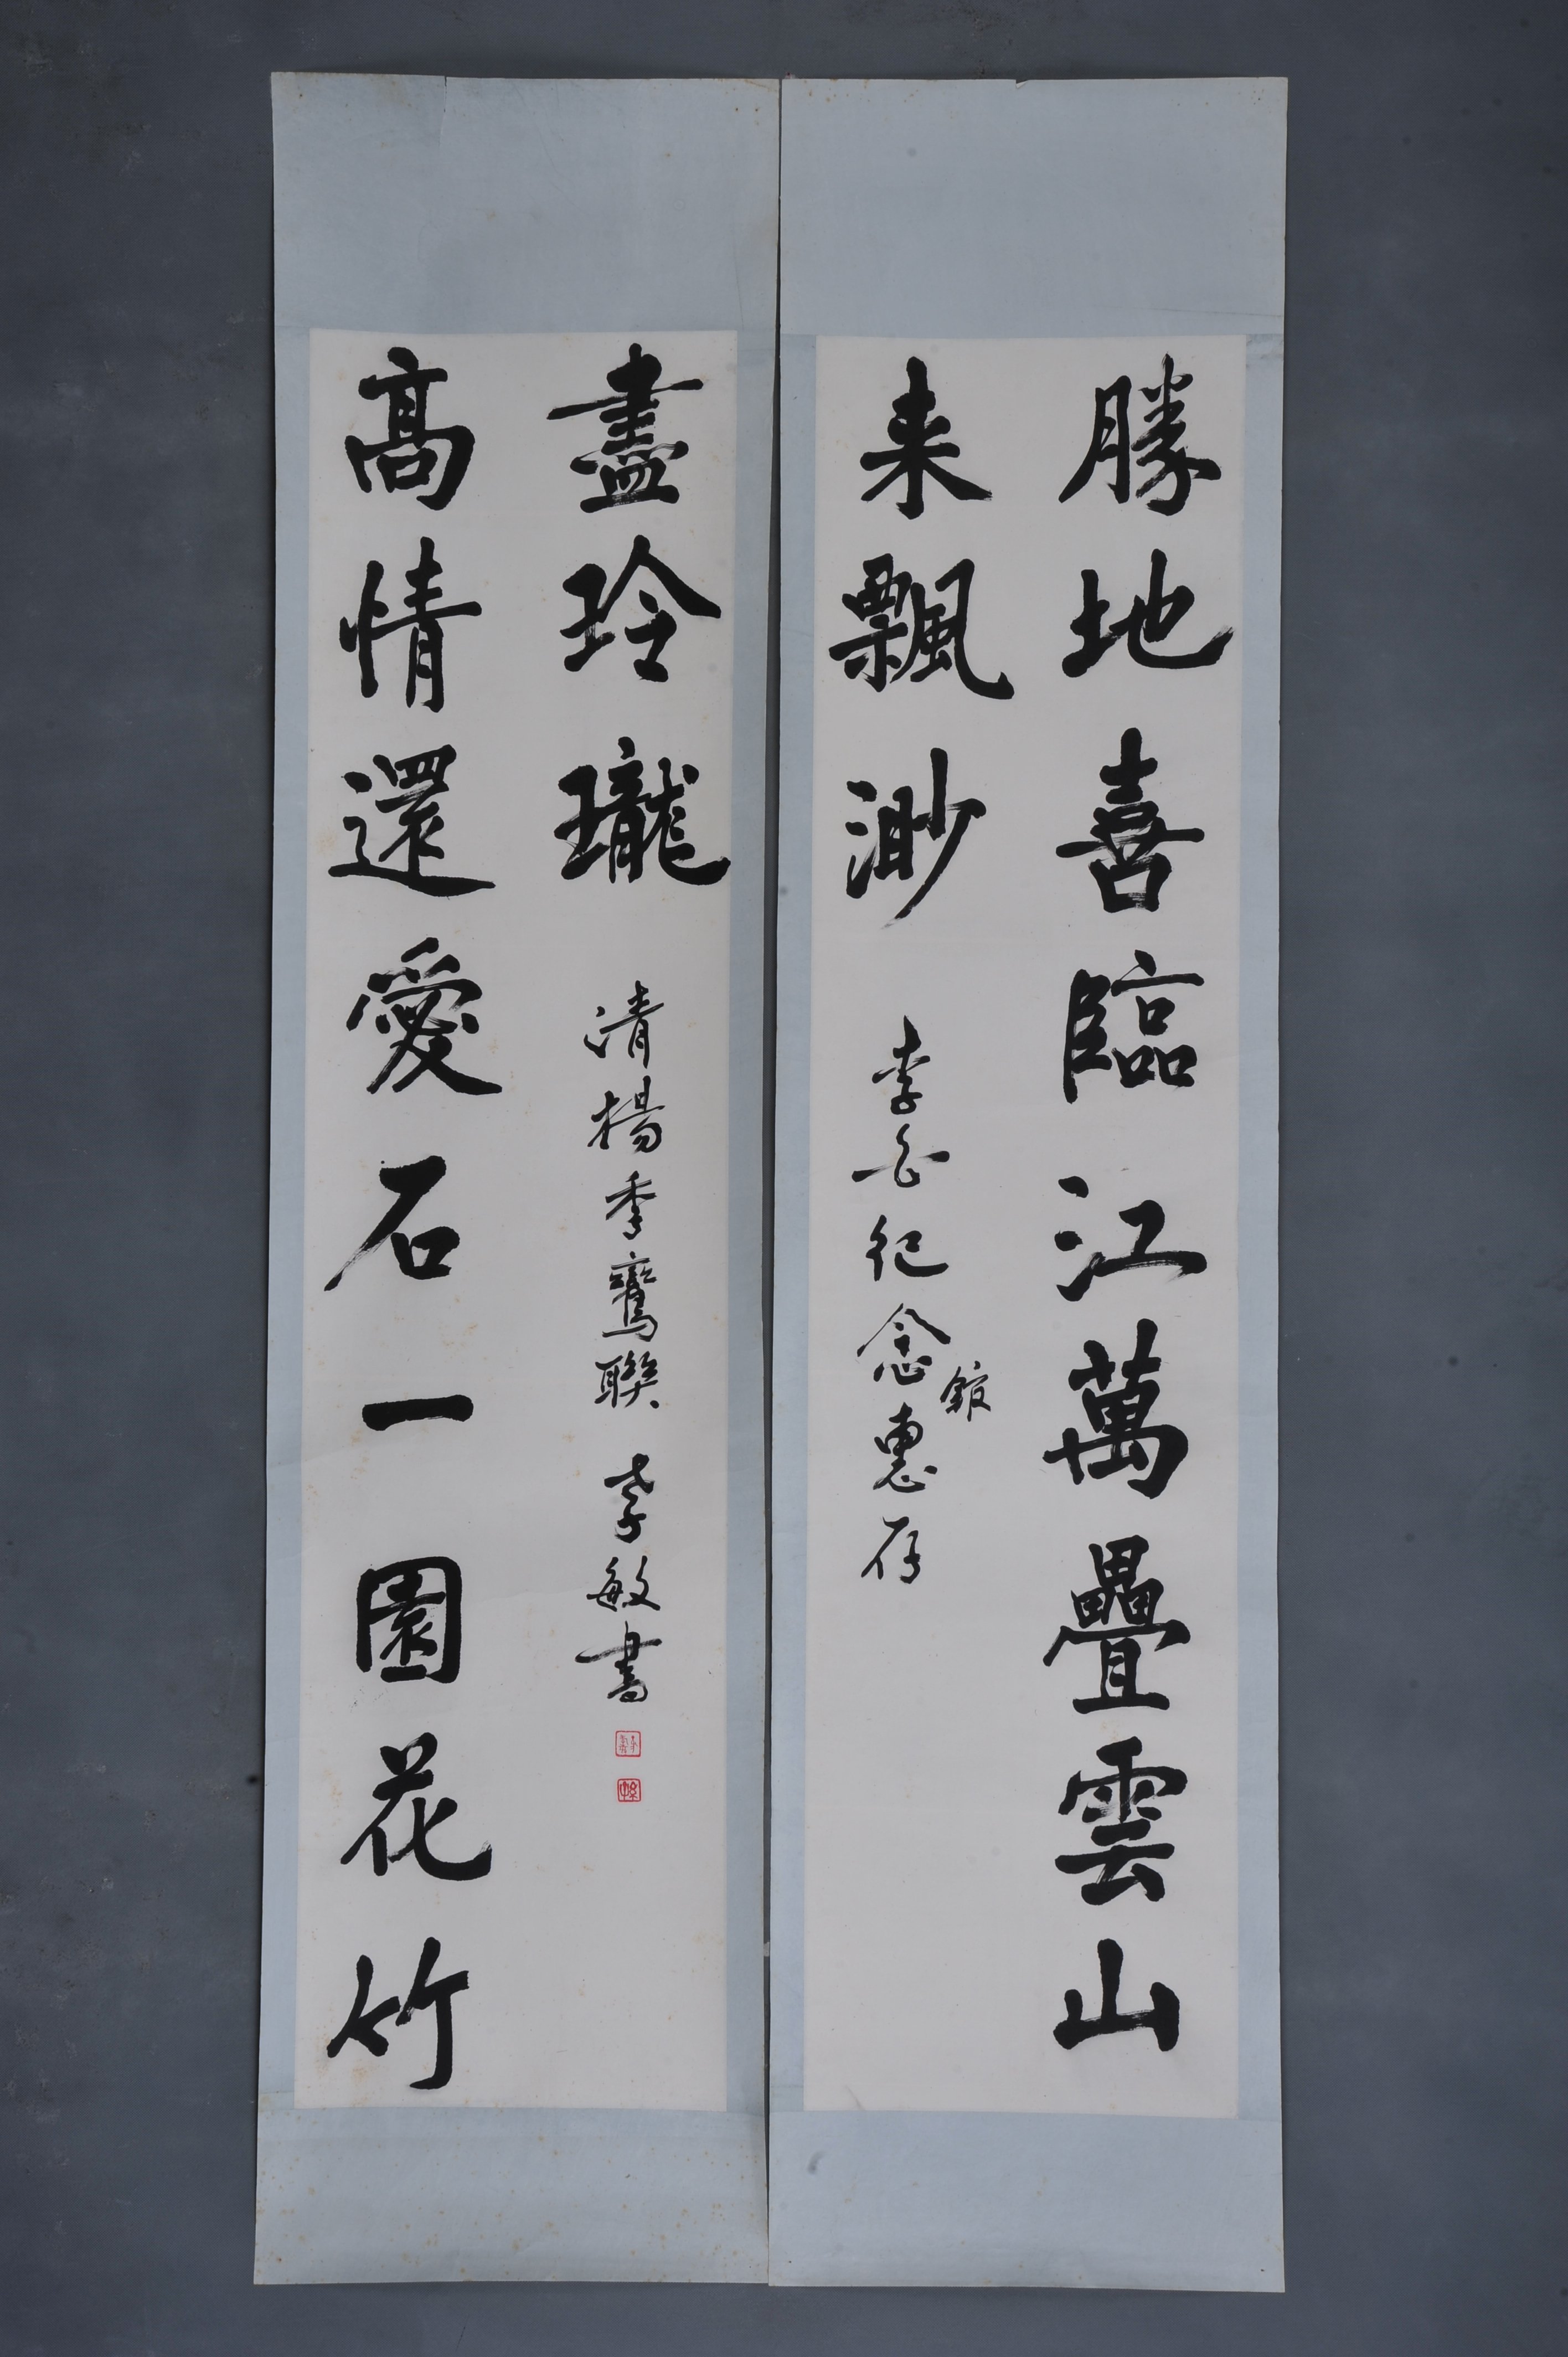 勝地喜臨江萬疊雲山
来飄渺
李白纪念館惠存
高情還愛石一園花竹
盡玲瓏
清楊季鸞聯 李敏書